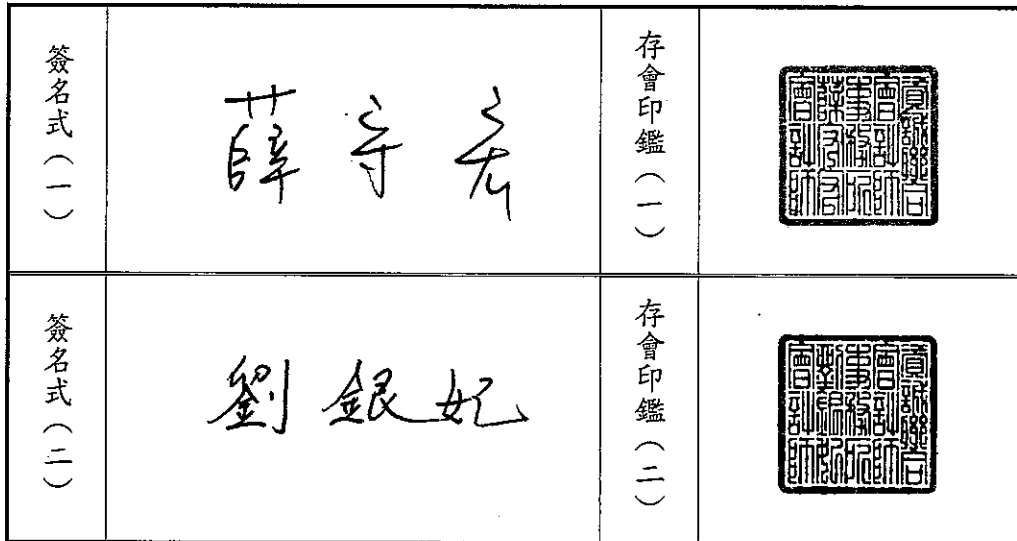 簽名式（一）
薛守宏
存會印鑑（一）
資誠聯合會計師事務所薛守宏會計師
簽名式（二）
劉銀妃
存會印鑑（二）
資誠聯合會計師事務所劉銀妃會計師